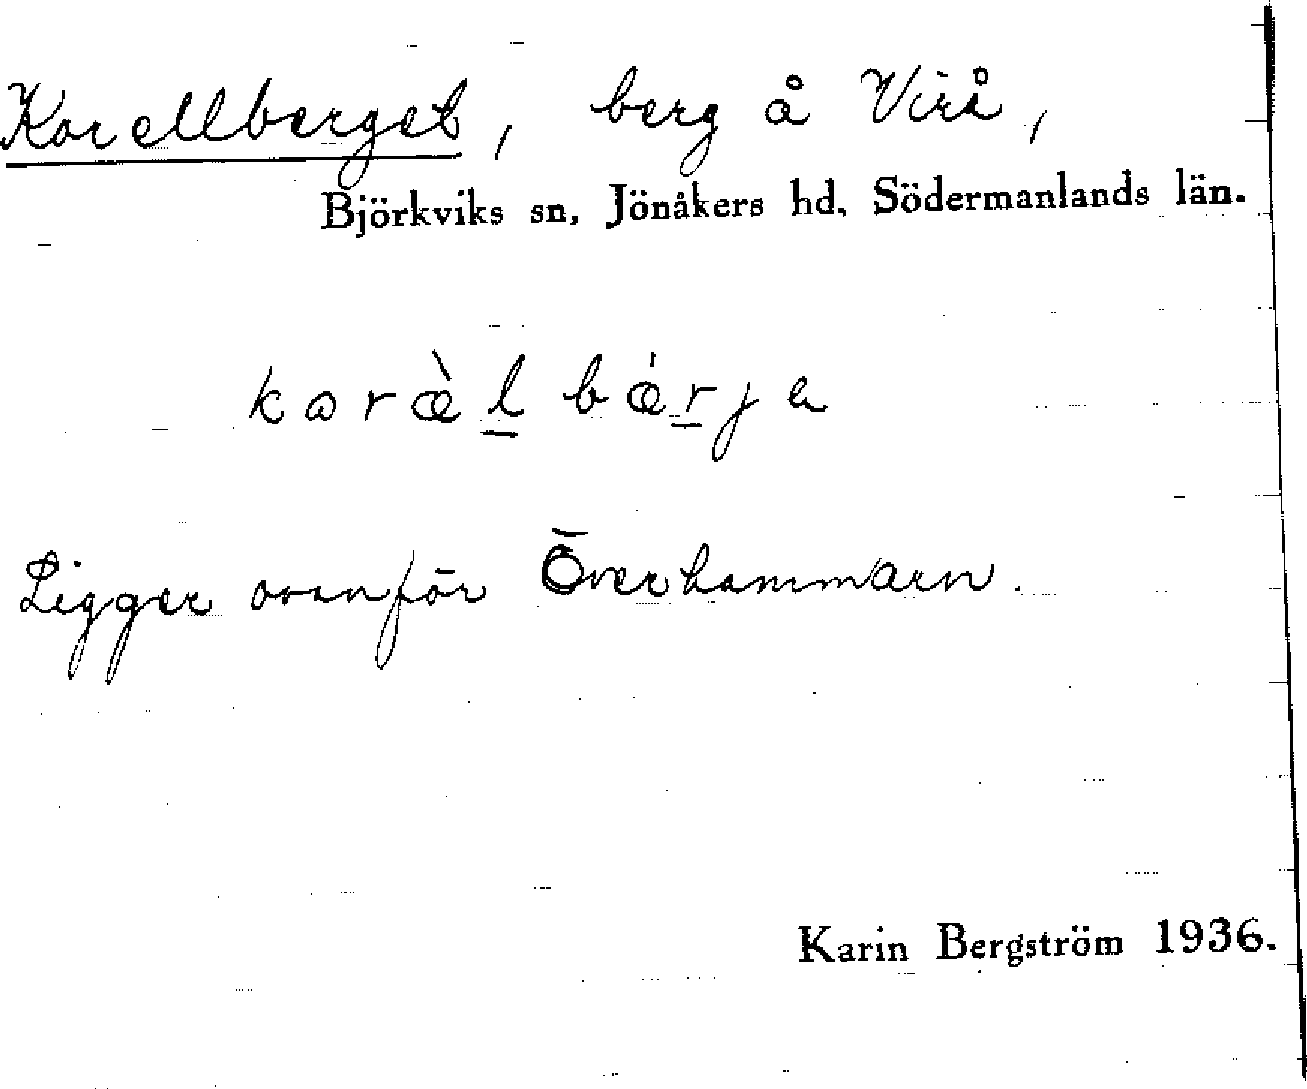 Korellberget, berg å Virå,
Björkviks sn, Jönåkers hd, Södermanlands län.
karæ̀l bǽrja
Ligger ovanför Överhammarn.
Karin Bergström 1936.